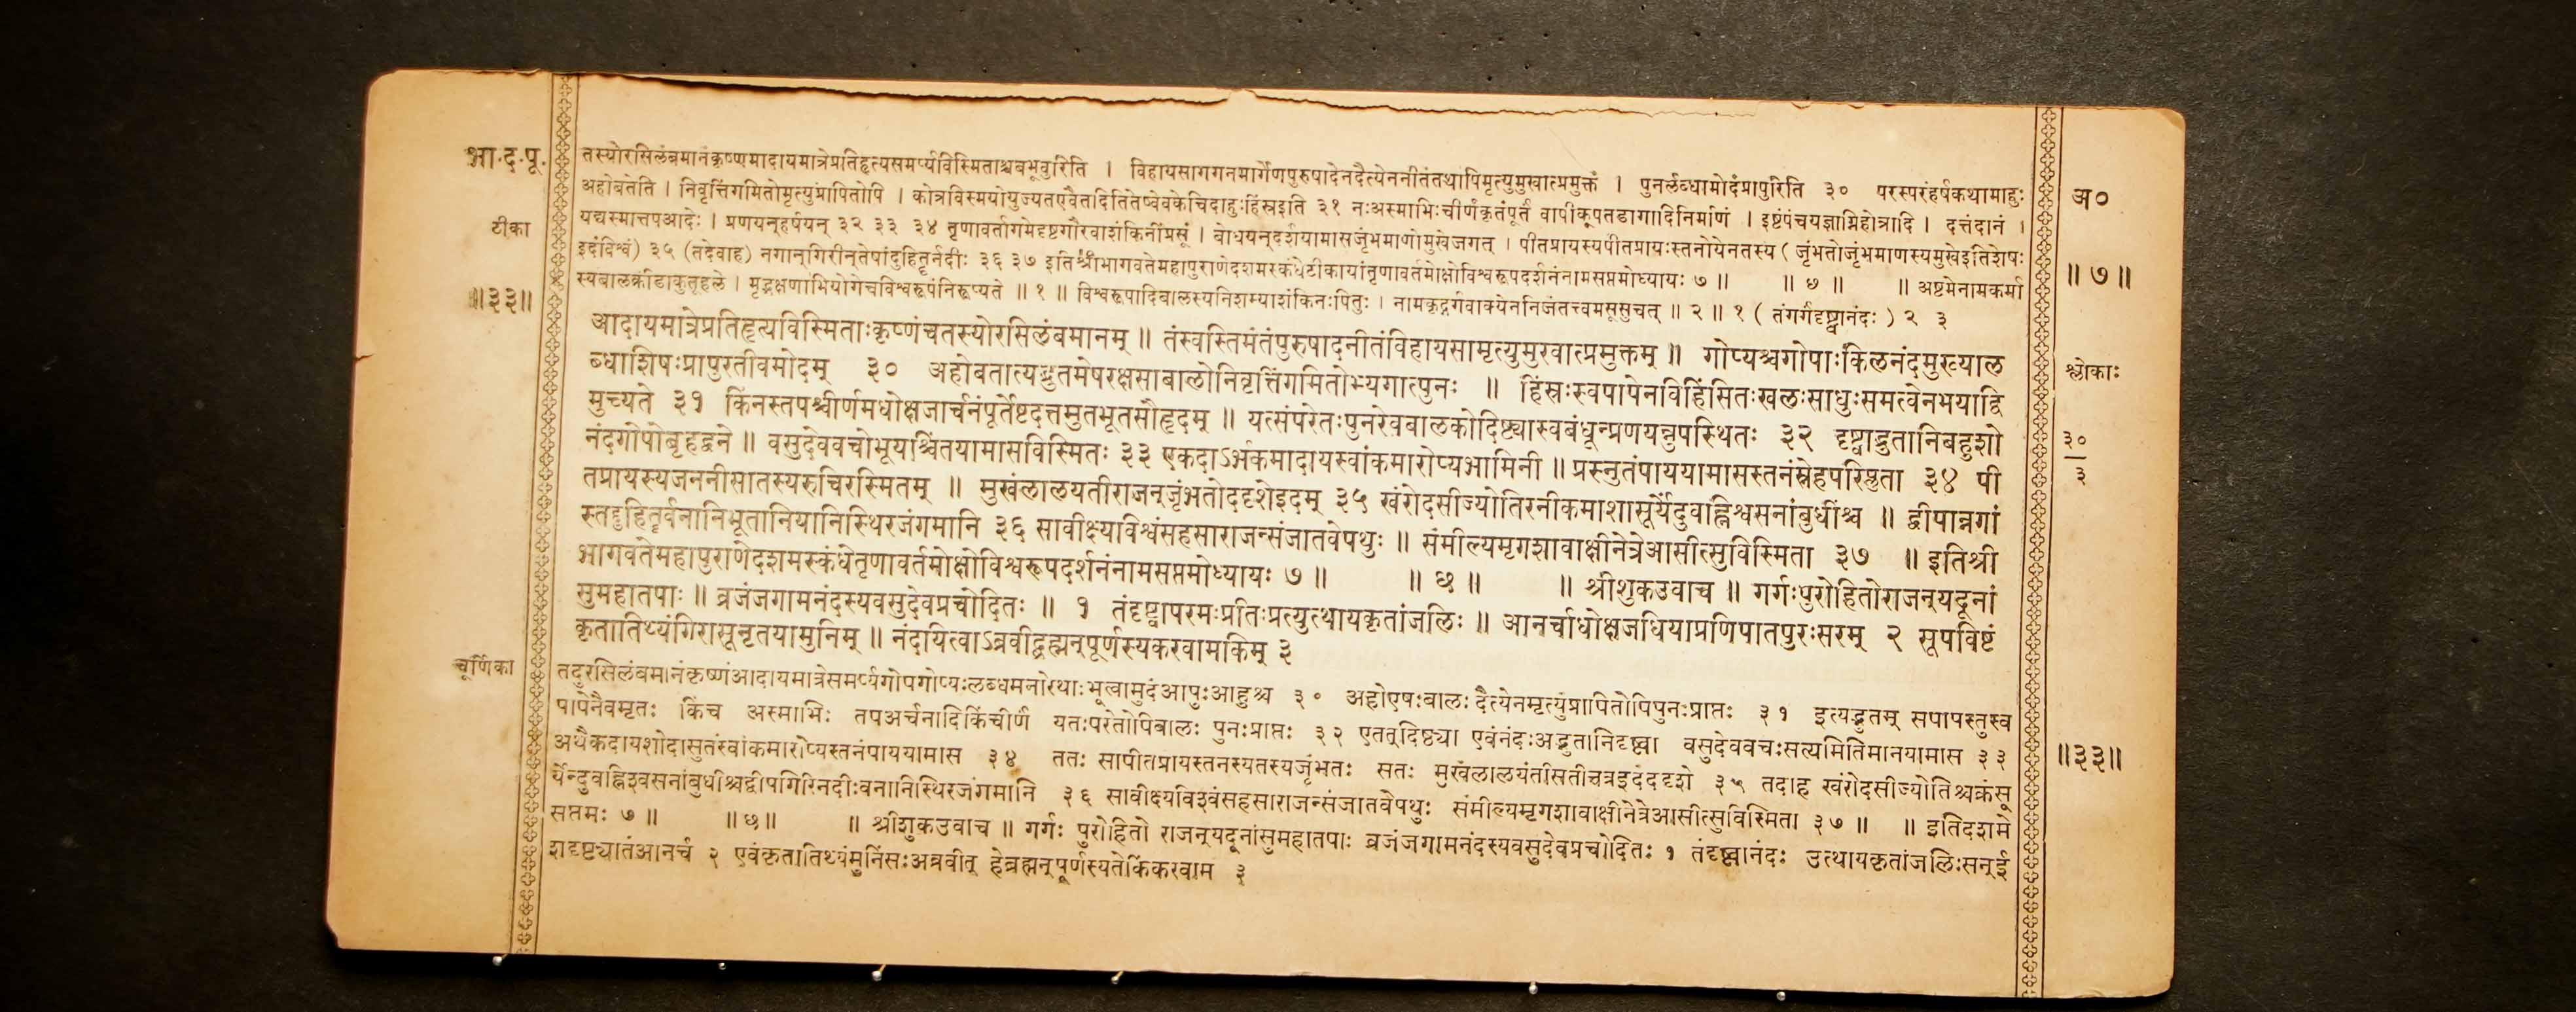 भा.द.पू.
टीका
॥३३॥
तस्योरसिलंबमानंकृष्णमादायमात्रेप्रतिहृत्यसमर्प्यविस्मिताश्चबभूवुरिति । विहायसागगनमार्गेणपुरुषादेनदैत्येननीतंतथापिमृत्युमुखात्प्रमुक्तं । पुनर्लब्धामोदंप्रापुरिति ३० परस्परंहर्षकथामाहुः
अहोबतेति । निवृत्तिंगमितोमृत्युंप्रापितोपि । कोत्रविस्मयोयुज्यतएवैतदितितेष्वेवकेचिदाहुःहिंस्रइति ३१ नःअस्माभिःचीर्णंकृतंपूर्तं वापीकूपतडागादिनिर्माणं । इष्टंपंचयज्ञाग्निहोत्रादि । दत्तंदानं ।
यद्यस्मात्तपआदेः । प्रणयन्हर्षयन् ३२ ३३ ३४ तृणावर्तागमेदृष्टगौरवाशंकिनींप्रसूं । बोधयन्दर्शयामासजृंभमाणोमुखेजगत् । पीतप्रायस्यपीतप्रायःस्तनोयेनतस्य ( जृंभतोजृंभमाणस्यमुखेइतिशेषः
इदंविश्वं) ३५ (तदेवाह) नगान्गिरीन्तेषांदुहितॄर्नदीः ३६ ३७ इतिश्रीभागवतेमहापुराणेदशमस्कंधेटीकायांतृणावर्तमोक्षोविश्वरूपदर्शनंनामसप्तमोध्यायः ७ ॥ ॥ ७ ॥ ॥ अष्टमेनामकर्मा
स्यबालक्रीडाकुतूहले । मृद्भक्षणाभियोगेचविश्वरूपंनिरूप्यते ॥ १ ॥ विश्वरूपादिबालस्यनिशम्याशंकिनःपितुः । नामकृद्गर्गवाक्येननिजंतत्त्वमसूसुचत् ॥ २ ॥ १ ( तंगर्गंदृष्ट्वानंदः ) २ ३
आदायमात्रेप्रतिहृत्यविस्मिताःकृष्णंचतस्योरसिलंबमानम् ॥ तंस्वस्तिमंतंपुरुषादनीतंविहायसामृत्युमुखात्प्रमुक्तम् ॥ गोप्यश्चगोपाःकिलनंदमुख्याल
ब्धाशिषःप्रापुरतीवमोदम् ३० अहोबतात्यद्भुतमेषरक्षसाबालोनिवृत्तिंगमितोभ्यगात्पुनः ॥ हिंस्रःस्वपापेनविहिंसितःखलःसाधुःसमत्वेनभयाद्वि
मुच्यते ३१ किंनस्तपश्चीर्णमधोक्षजार्चनंपूर्तेष्टदत्तमुतभूतसौहृदम् ॥ यत्संपरेतःपुनरेवबालकोदिष्ट्यास्वबंधून्प्रणयन्नुपस्थितः ३२ दृष्ट्वाद्भुतानिबहुशो
नंदगोपोबृहद्वने ॥ वसुदेववचोभूयश्चिंतयामासविस्मितः ३३ एकदाऽर्भकमादायस्वांकमारोप्यभामिनी ॥ प्रस्नुतंपाययामासस्तनंस्नेहपरिप्लुता ३४ पी
तप्रायस्यजननीसातस्यरुचिरस्मितम् ॥ मुखंलालयतीराजन्जृंभतोददृशेइदम् ३५ खंरोदसीज्योतिरनीकमाशासूर्येंदुवह्निश्वसनांबुधींश्च ॥ द्वीपान्नगां
स्तद्दुहितॄर्वनानिभूतानियानिस्थिरजंगमानि ३६ सावीक्ष्यविश्वंसहसाराजन्संजातवेपथुः ॥ संमील्यमृगशावाक्षीनेत्रेआसीत्सुविस्मिता ३७ ॥ इतिश्री
भागवतेमहापुराणेदशमस्कंधेतृणावर्तमोक्षोविश्वरूपदर्शनंनामसप्तमोध्यायः ७ ॥ ॥ छ ॥ ॥ श्रीशुकउवाच ॥ गर्गःपुरोहितोराजन्यदूनां
सुमहातपाः ॥ व्रजंजगामनंदस्यवसुदेवप्रचोदितः ॥ १ तंदृष्ट्वापरमःप्रतिःप्रत्युत्थायकृतांजलिः ॥ आनर्चाधोक्षजधियाप्रणिपातपुरःसरम् २ सूपविष्टं
कृतातिथ्यंगिरासूनृतयामुनिम् ॥ नंदयित्वाऽब्रवीद्ब्रह्मन्पूर्णस्यकरवामकिम् ३
चूर्णिका
तदुरसिलंबमानंकृष्णंआदायमात्रेसमर्प्यगोपगोप्यःलब्धमनोरथाःभूत्वामुदंआपुःआहुश्च ३० अहोएषःबालःदैत्येनमृत्युंप्रापितोपिपुनःप्राप्तः ३१ इत्यद्भुतम् सपापस्तुस्व
पापेनैवमृतः किंच अस्माभिः तपअर्चनादिकिंचीर्णं यतःपरेतोपिबालः पुनःप्राप्तः ३२ एतत्दिष्ट्या एवंनंदःअद्भुतानिदृष्ट्वा वसुदेववचःसत्यमितिमानयामास ३३
अथैकदायशोदासुतंस्वांकमारोप्यस्तनंपाययामास ३४ ततः सापीतप्रायस्तनस्यतस्यजृंभतः सतः मुखंलालयंतीसतीचत्रइदंददृशे ३५ तदाह खंरोदसीज्योतिश्चक्रंसू
र्येन्दुवह्निश्वसनांबुधीश्चद्वीपगिरिनदीःवनानिस्थिरजंगमानि ३६ सावीक्ष्यविश्वंसहसाराजन्संजातवेपथुः संमील्यमृगशावाक्षीनेत्रेआसीत्सुविस्मिता ३७ ॥ ॥ इतिदशमे
सप्तमः ७ ॥ ॥ छ ॥ ॥ श्रीशुकउवाच ॥ गर्गः पुरोहितो राजन्यदूनांसुमहातपाः व्रजंजगामनंदस्यवसुदेवप्रचोदितः १ तंदृष्ट्वानंदः उत्थायकृतांजलिःसन्ई
शदृष्ट्यातंआनर्च २ एवंकृतातिथ्यंमुनिंसःअब्रवीत् हेब्रह्मन्पूर्णस्यतेकिंकरवाम ३
अ०
॥ ७ ॥
श्लोकाः
३०
३
॥३३॥